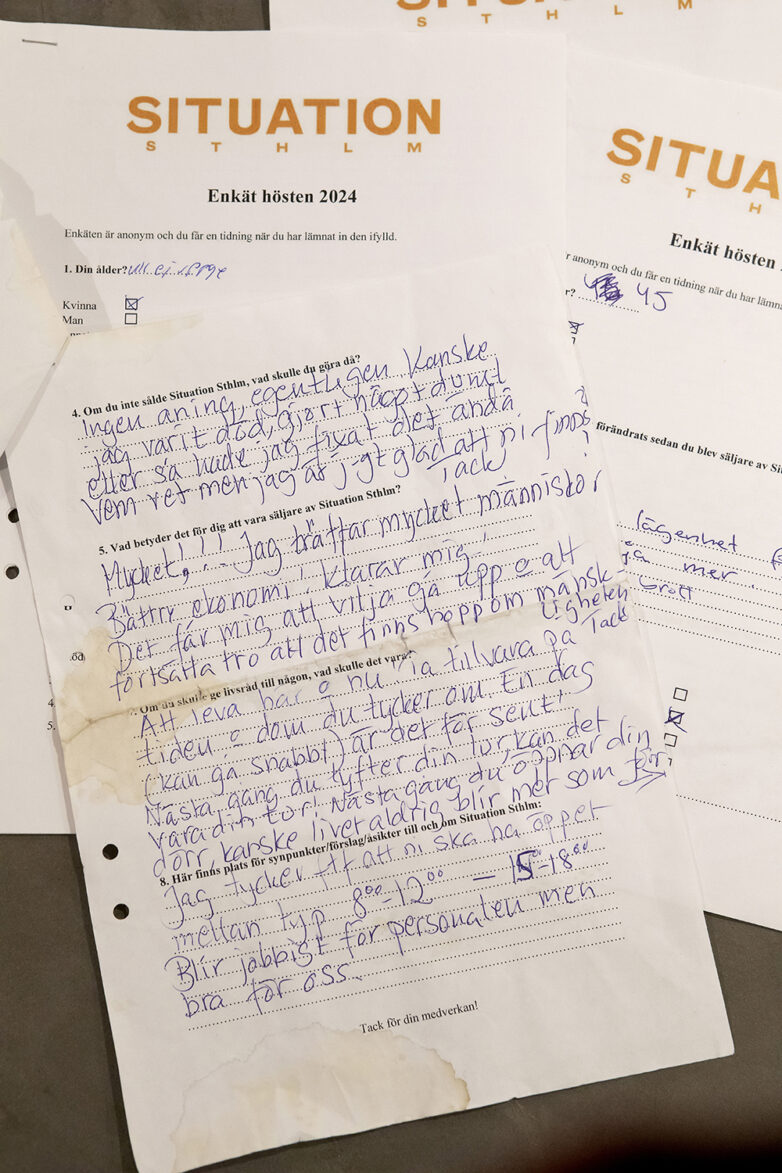 SITUATION
S T H L M
Enkät hösten 2024
Enkäten är anonym och du får en tidning när du har lämnat in den ifylld.
1. Din ålder? Vill ej uppge
Kvinna
Man
4. Om du inte sålde Situation Sthlm, vad skulle du göra då?
Ingen aning, egentligen Kanske
jag varit död, gjort något dumt
eller så hade jag fixat det ändå
Vem vet men jag är j-gt glad att ni finns
Tack
5. Vad betyder det för dig att vara säljare av Situation Sthlm?
Mycket!!! Jag träffar mycket människor
Bättre ekonomi! klarar mig!
Det får mig att vilja gå upp o att
fortsätta tro att det finns hopp om mänsk
ligheten
Tack
Om du skulle ge livsråd till någon, vad skulle det vara?
Att leva här o nu ta tillvara på
tiden o dom du tycker om En dag
(kan gå snabbt) är det för sent!
Nästa gång du lyfter din lur, kan det
vara din tur! Nästa gång du öppnar din
dörr, kanske livet aldrig blir mer som förr
8. Här finns plats för synpunkter/förslag/åsikter till och om Situation Sthlm:
Jag tycker att ni ska ha öppet
mellan typ 8⁰⁰-12⁰⁰ — 15-18⁰⁰
Blir jobbigt för personalen men
bra för oss
Tack för din medverkan!
S T H L M
SITUA
S T H
Enkät hösten
r anonym och du får en tidning när du har lämna
r? 45
förändrats sedan du blev säljare av Si
lägenhet
mer.
brott
öd)
4.
5.